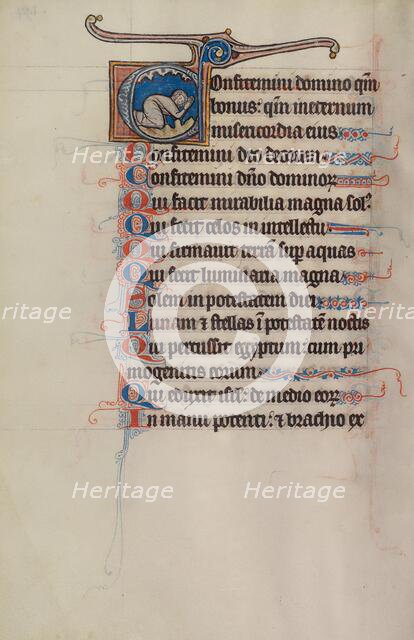 Confitemini domino qm̄
bonus: qm̄ ineternum
misericordia eius
Confitemini deo deorum
Confitemini dn̄o dominor
Qui facit mirabilia magna sol'
Qui fecit celos in intellectu
Qui firmauit terrā sup aquas
Qui fecit luminaria magna
Solem in potestatem diei
Lunam & stellas ī potestatē noctis
Qui percussit egyptum: cum pri
mogenitis eorum
Qui eduxit isrl: de medio eor
In manu potenti: & brachio ex
Heritage Heritage
Heritage Heritage
Heritage Heritage